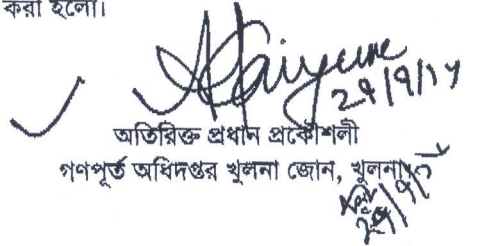 করা হলো।
২৭/৭/১৭
অতিরিক্ত প্রধান প্রকৌশলী
গণপূর্ত অধিদপ্তর খুলনা জোন, খুলনা